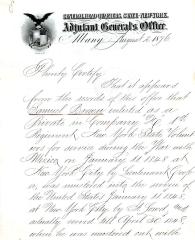 GENERAL HEADQUARTERS, STATE OF NEW-YORK,
Adjutant General's Office,
Albany, August 2 1876
I hereby Certify,
That it appears
from the records of this office that
Samuel enlisted as a
Private in Company 1st
Regiment, New York State Volun
for service during the War with
Mexico on January 11 1848 at
New York City by Lieutenant
was mustered into the service of
the United States January 11 1848
at New York City by
actually served till April 30 1848
when he was mustered out with